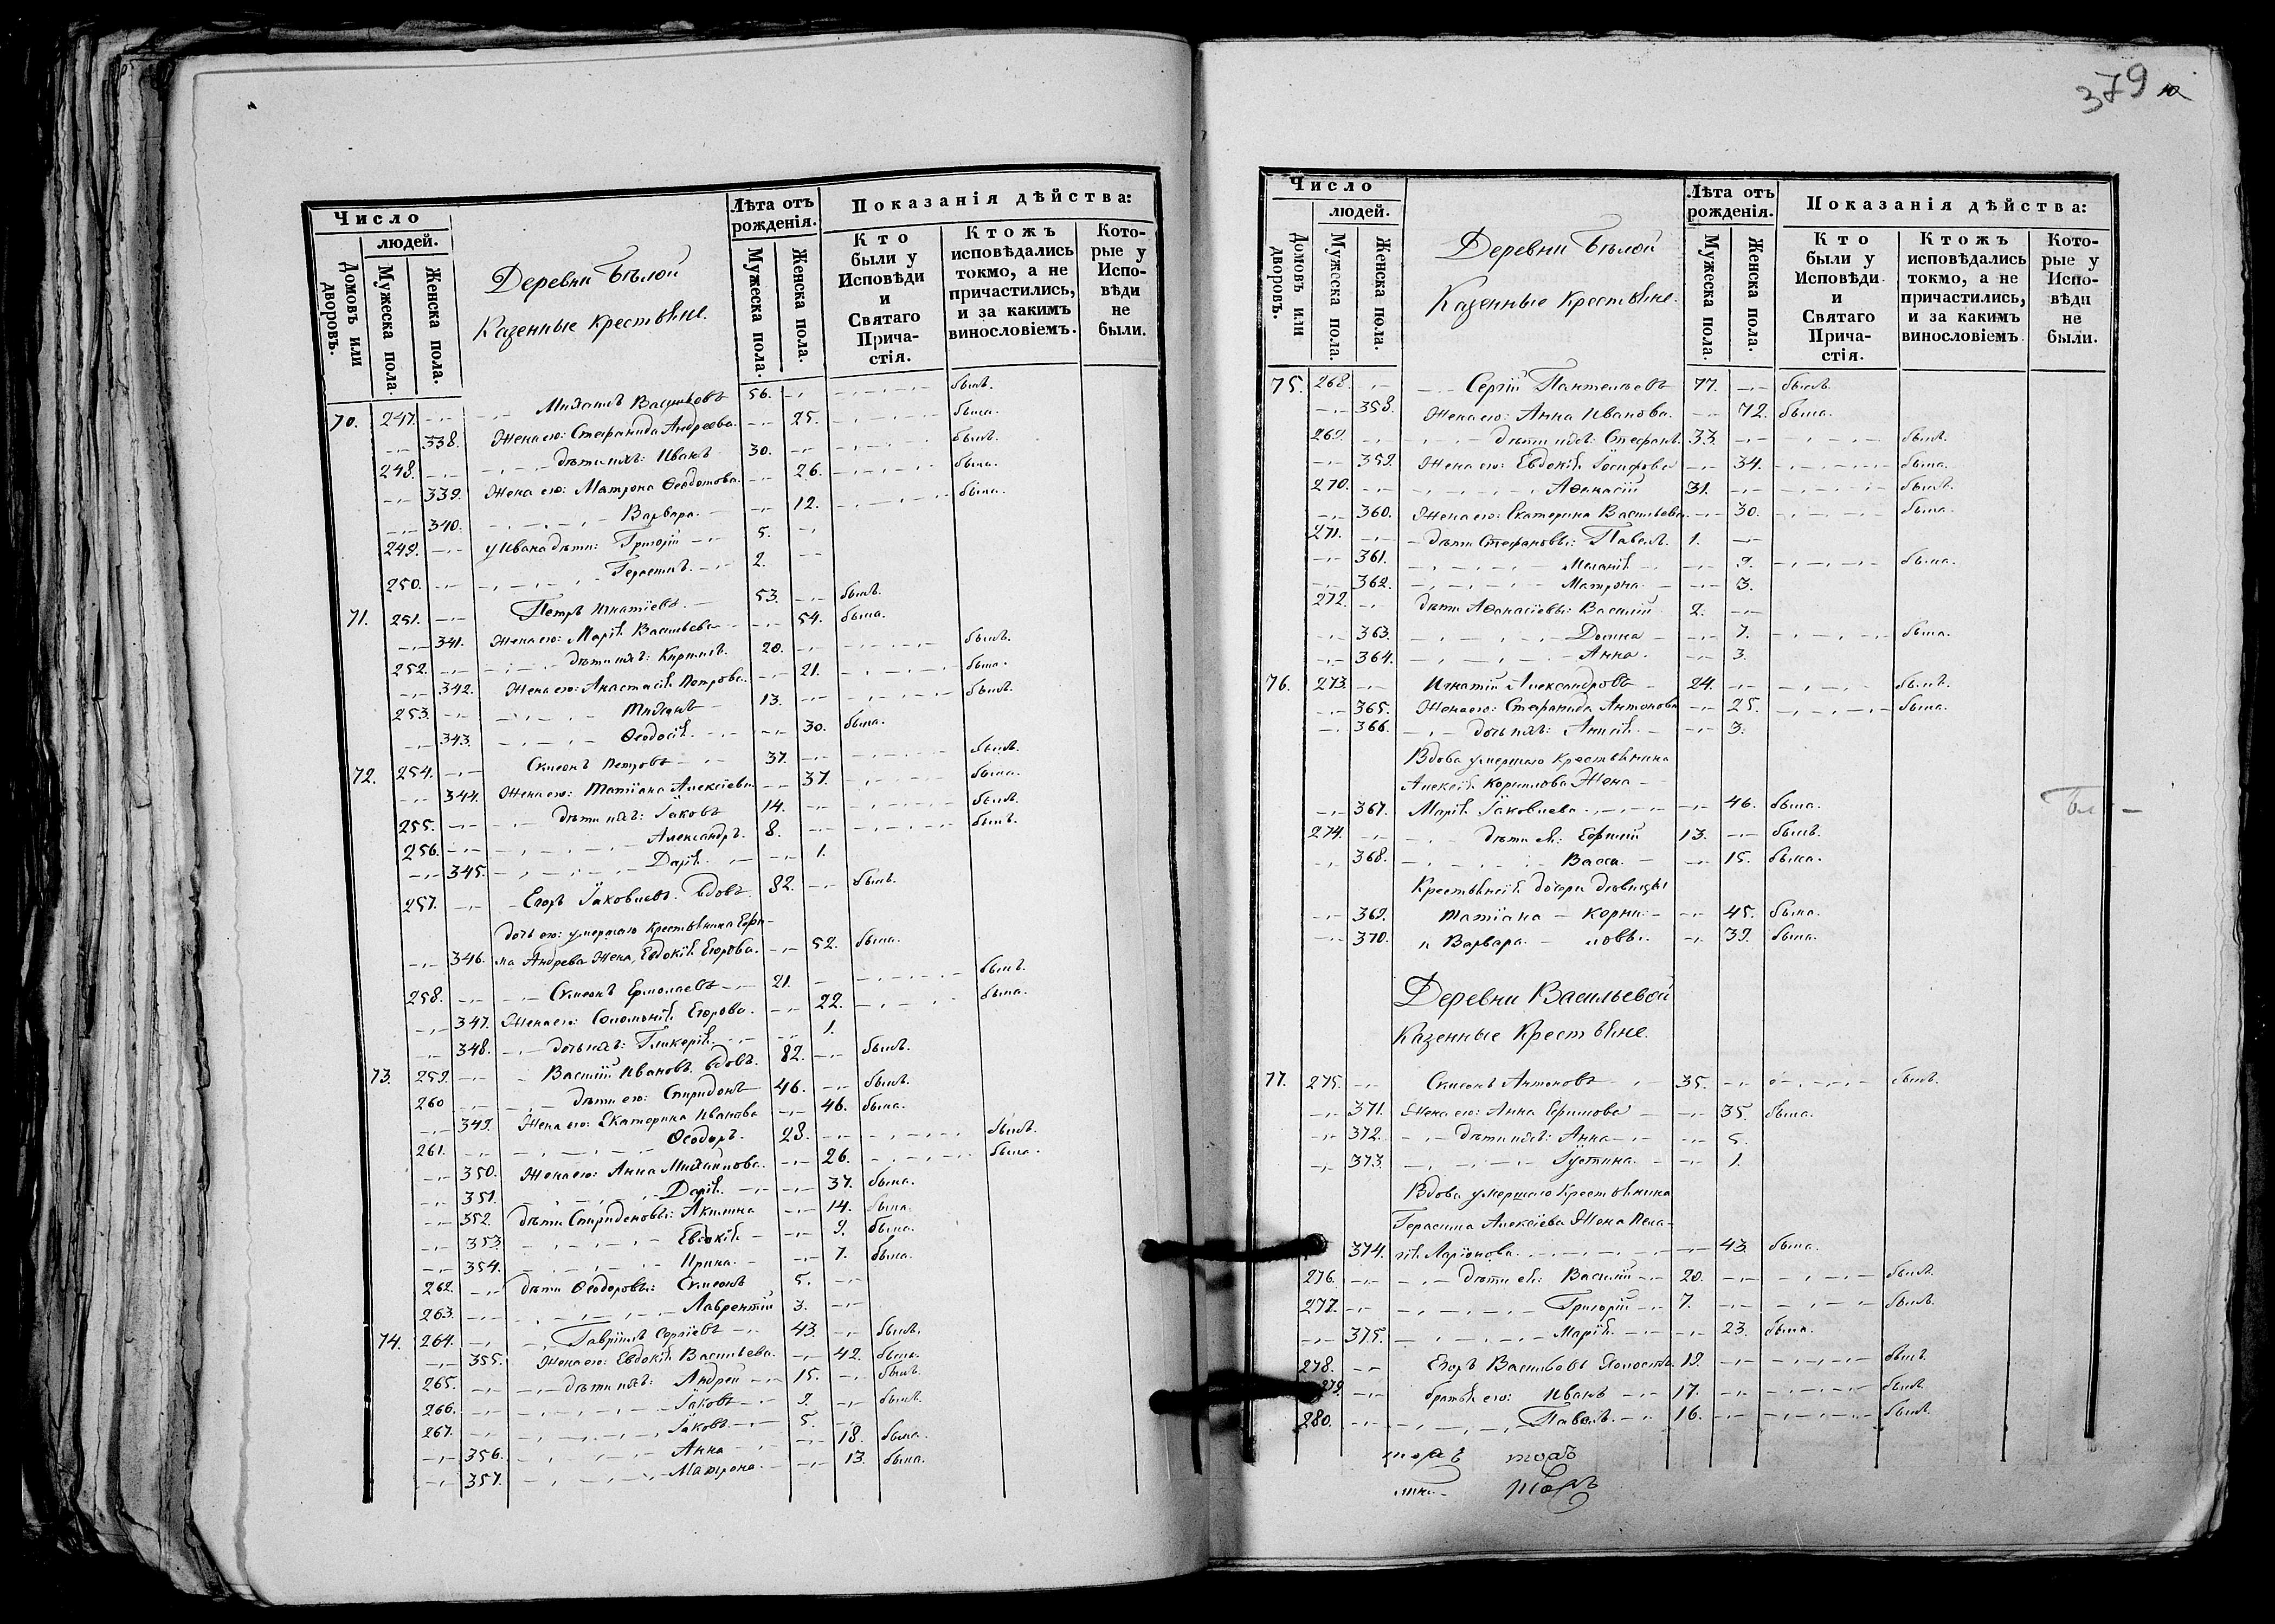 379
Число
людей.
Домовъ или дворовъ.
Мужеска пола.
Женска пола.
Деревни Бѣлой
Казенные крестьяне.
Лѣта отъ рожденія.
Мужеска пола.
Женска пола.
Показанія дѣйства:
Кто были у Исповѣди и Святаго Причастія.
Ктожъ исповѣдались токмо, а не причастились, и за какимъ винословіемъ.
Которые у Исповѣди не были.
70. 247. Михаилъ Васильевъ 56. былъ.
338. Жена его: Стефанида Андреева. 25. была.
248. дѣти ихъ: Иванъ 30. былъ.
339. Жена его: Матрона Ѳеодотова. 26. была.
340. Варвара. 12. была.
249. у Ивана дѣти: Григорій 5.
250. Герасимъ. 2.
71. 251. Петръ Игнатіевъ. 53. былъ.
341. Жена его: Марія Васильева 54. была.
252. дѣти ихъ: Кирилъ. 20. былъ.
342. Жена его: Анастасія Петрова. 21. была.
253. 13. былъ.
343. Ѳеодосія. 30. была.
72. 254. Симеонъ Петровъ 37. былъ.
344. Жена его: Татіана Алексіева 37. была.
255. дѣти ихъ: Іаковъ 14. былъ.
256. Александръ. 8. былъ.
345. Дарія. 1.
257. Егоръ Іаковлевъ. вдовъ. 82. былъ.
дочь его: умершаго крестьянина Ефи-
346. ма Андрева Жена, Евдокія Егорова. 52. была.
258. Симеонъ Ермолаевъ 21. былъ.
347. Жена его: Соломонія Егорова. 22. была.
348. дочь ихъ: Гликерія. 1.
73. 259. Василій Ивановъ. вдовъ. 82. былъ.
260 дѣти его: Спиридонъ 46. былъ.
349. Жена его: Екатерина Иванова 46. была.
261. Ѳеодоръ. 28. былъ.
350. Жена его: Анна Михаилова. 26. была.
351. Дарія. 37. была.
352. дѣти Спиридоновы: Акилина 14. была.
353. Евдокія 9. была.
354. Ирина. 7. была.
262. дѣти Ѳеодоровы: Симеонъ 5.
263. Лаврентій 3.
74. 264. Гавріилъ Сергіевъ 43. былъ.
355. Жена его: Евдокія Васильева. 42. была.
265. дѣти ихъ: Андрей 15. былъ.
266. Іаковъ 9. былъ.
267. Іаковъ 5.
356. Анна 18. была.
357. Матрона. 13. была.
Число
людей.
Домовъ или дворовъ.
Мужеска пола.
Женска пола.
Деревни Бѣлой
Казенные крестьяне.
Лѣта отъ рожденія.
Мужеска пола.
Женска пола.
Показанія дѣйства:
Кто были у Исповѣди и Святаго Причастія.
Ктожъ исповѣдались токмо, а не причастились, и за какимъ винословіемъ.
Которые у Исповѣди не были.
75. 268. Сергій Пантелѣевъ 77. былъ.
358. Жена его: Анна Иванова. 72. была.
269. дѣти ихъ: Стефанъ. 33. былъ.
359. Жена его: Евдокія Іосифова 34. была.
270. Аѳанасій 31. былъ.
360. Жена его: Екатерина Васильева. 30. была.
271. дѣти Стефановы: Павелъ. 1.
361. Меланія 9. была.
362. Матрона. 3.
272. дѣти Аѳанасіевы: Василій 2.
363. Домна 7. была.
364. Анна. 3.
76. 273. Игнатій Александровъ 24. былъ.
365. Жена его: Стефанида Антонова 25. была.
366. дочь ихъ: Анисія 3.
Вдова умершаго крестьянина
Алексія Корнилова Жена
367. Марія Іаковлева. 46. была.
274. дѣти ея: Ефимій 13. былъ.
368. Васса. 15. была.
Крестьянскія дочери дѣвицы
369. Татіана Корни- 45. была.
370. и Варвара. ловы. 39. была.
Деревни Васильевой
Казенные Крестьяне.
77. 275. Симеонъ Антоновъ 35. былъ.
371. Жена его: Анна Ефимова 35. была.
372. дѣти ихъ: Анна 5.
373. Іустина. 1.
Вдова умершаго Крестьянина
Герасима Алексіева Жена Пела-
374. гія Ларіонова. 43. была.
276. дѣти ея: Василій 20. былъ.
277. Григорій 7. былъ.
375. Марія. 23. была.
278. Егоръ Васильевъ Холостъ. 19. былъ.
279. братья его: Иванъ 17. былъ.
280. Павелъ. 16. былъ.